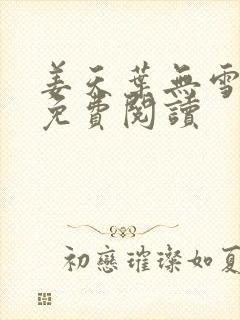 姜天葉無雪
免費閱讀
初戀璀璨如夏